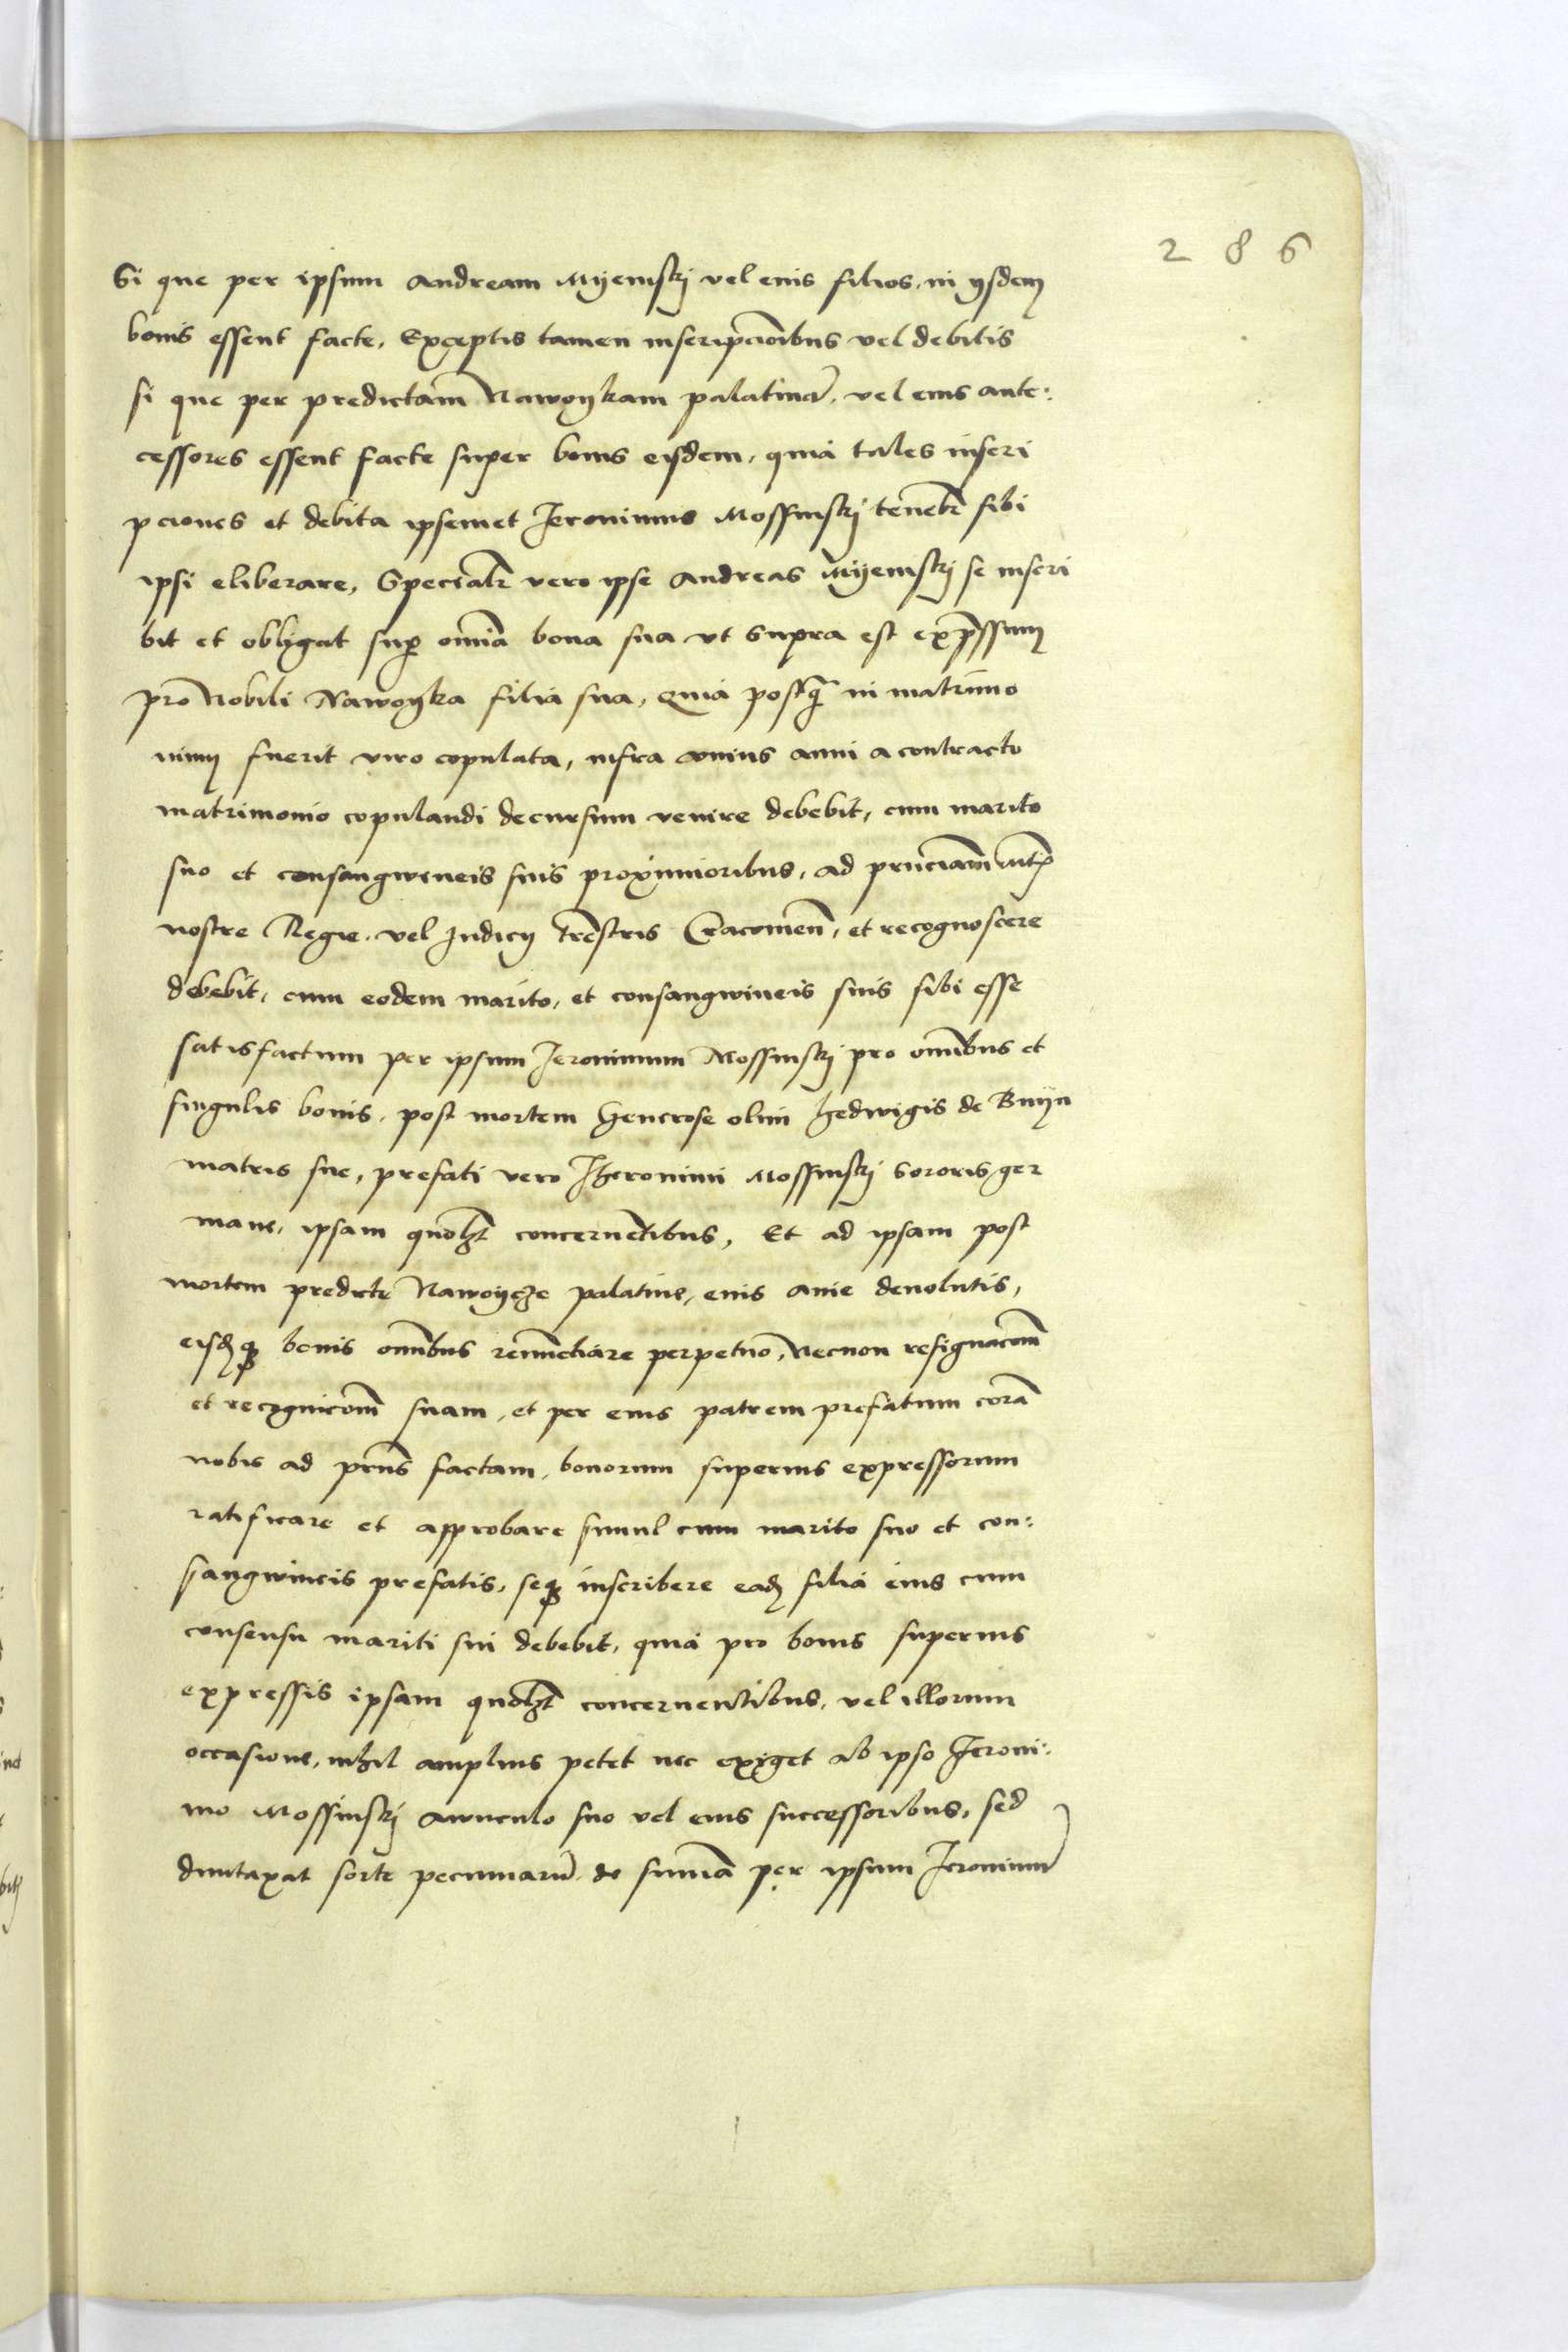 286
Si que per ipsum Andream Myemsky vel eius filios, in ysdem
bonis essent facte, Exceptis tamen inscripcionibus vel debitis
si que per predictam Nawoykam palatinā, vel eius ante:
cessores essent facte super bonis eisdem, quia tales inscri
pciones et debita ipsemet Jeronimus Mossinsky tenebr̄ sibi
ipsi eliberare, Specialr̄ vero ipse Andreas Myemsky se inscri
bit et obligat sup̱ om̄ia bona sua vt supra est exp̄ssum
pro Nobili Nawoyka filia sua, Quia postq̄ in matrimo
nium fuerit viro copulata, infra vnius anni a contracto
matrimonio copulandi decursum venire debebit, cum marito
suo et consangweneis suis proximioribus, ad pn̄ciam
nostre Regie vel Judicy tr̄estris Cracouien̄, et recognoscere
debebit, cum eodem marito, et consangwineis suis sibi esse
satisfactum per ipsum Jeronimum Mossinsky pro om̄ibus et
singulis bonis, post mortem Generose olim Hedwigis de Buyn
matris sue, prefati vero Jheronimi Mossinsky Sororis ger
mane, ipsam quoḥt concernētibus, Et ad ipsam post
mortem predicte Nawoycze palatine, eius auie deuolutis,
eisdȩ̄ bonis om̄ibus renūctiare perpetuo, Necnon resignacōm̄
et recognicōm̄ suam, et per eius patrem prefatum corā
nobis ad prn̄s factam, bonorum superius expressorum
ratificare et approbare simul cum marito suo et con:
sangwineis prefatis, seqȝ inscribere eadȝ filia eius cum
consensu mariti sui debebit, quia pro bonis superius
expressis ipsam quoḥt concernentibus, vel illorum
occasione, nihil amplius petet nec exiget ab ipso Jeroni:
mo Mossinsky Awunculo suo vel eius successoribus, sed
duntaxat sorte pecuniarū de summa per ipsum Jeronimū